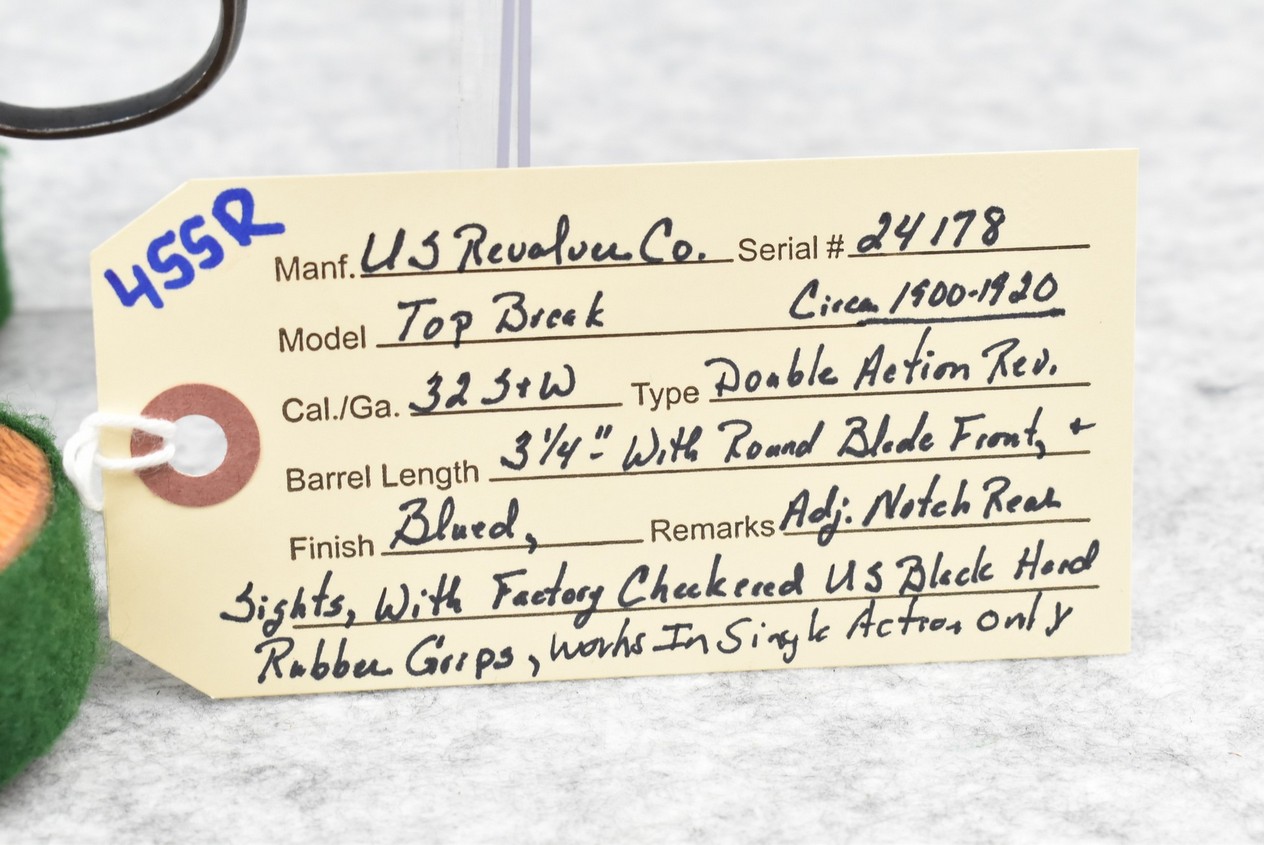 455R
Manf. US Revolver Co. Serial # 24178
Model Top Break Circa 1900-1920
Cal./Ga. 32 S+W Type Double Action Rev.
Barrel Length 3 1/4" With Round Blade Front, +
Finish Blued, Remarks Adj. Notch Rear
Sights, With Factory Checkered US Black Hard
Rubber Grips, Works In Single Action Only